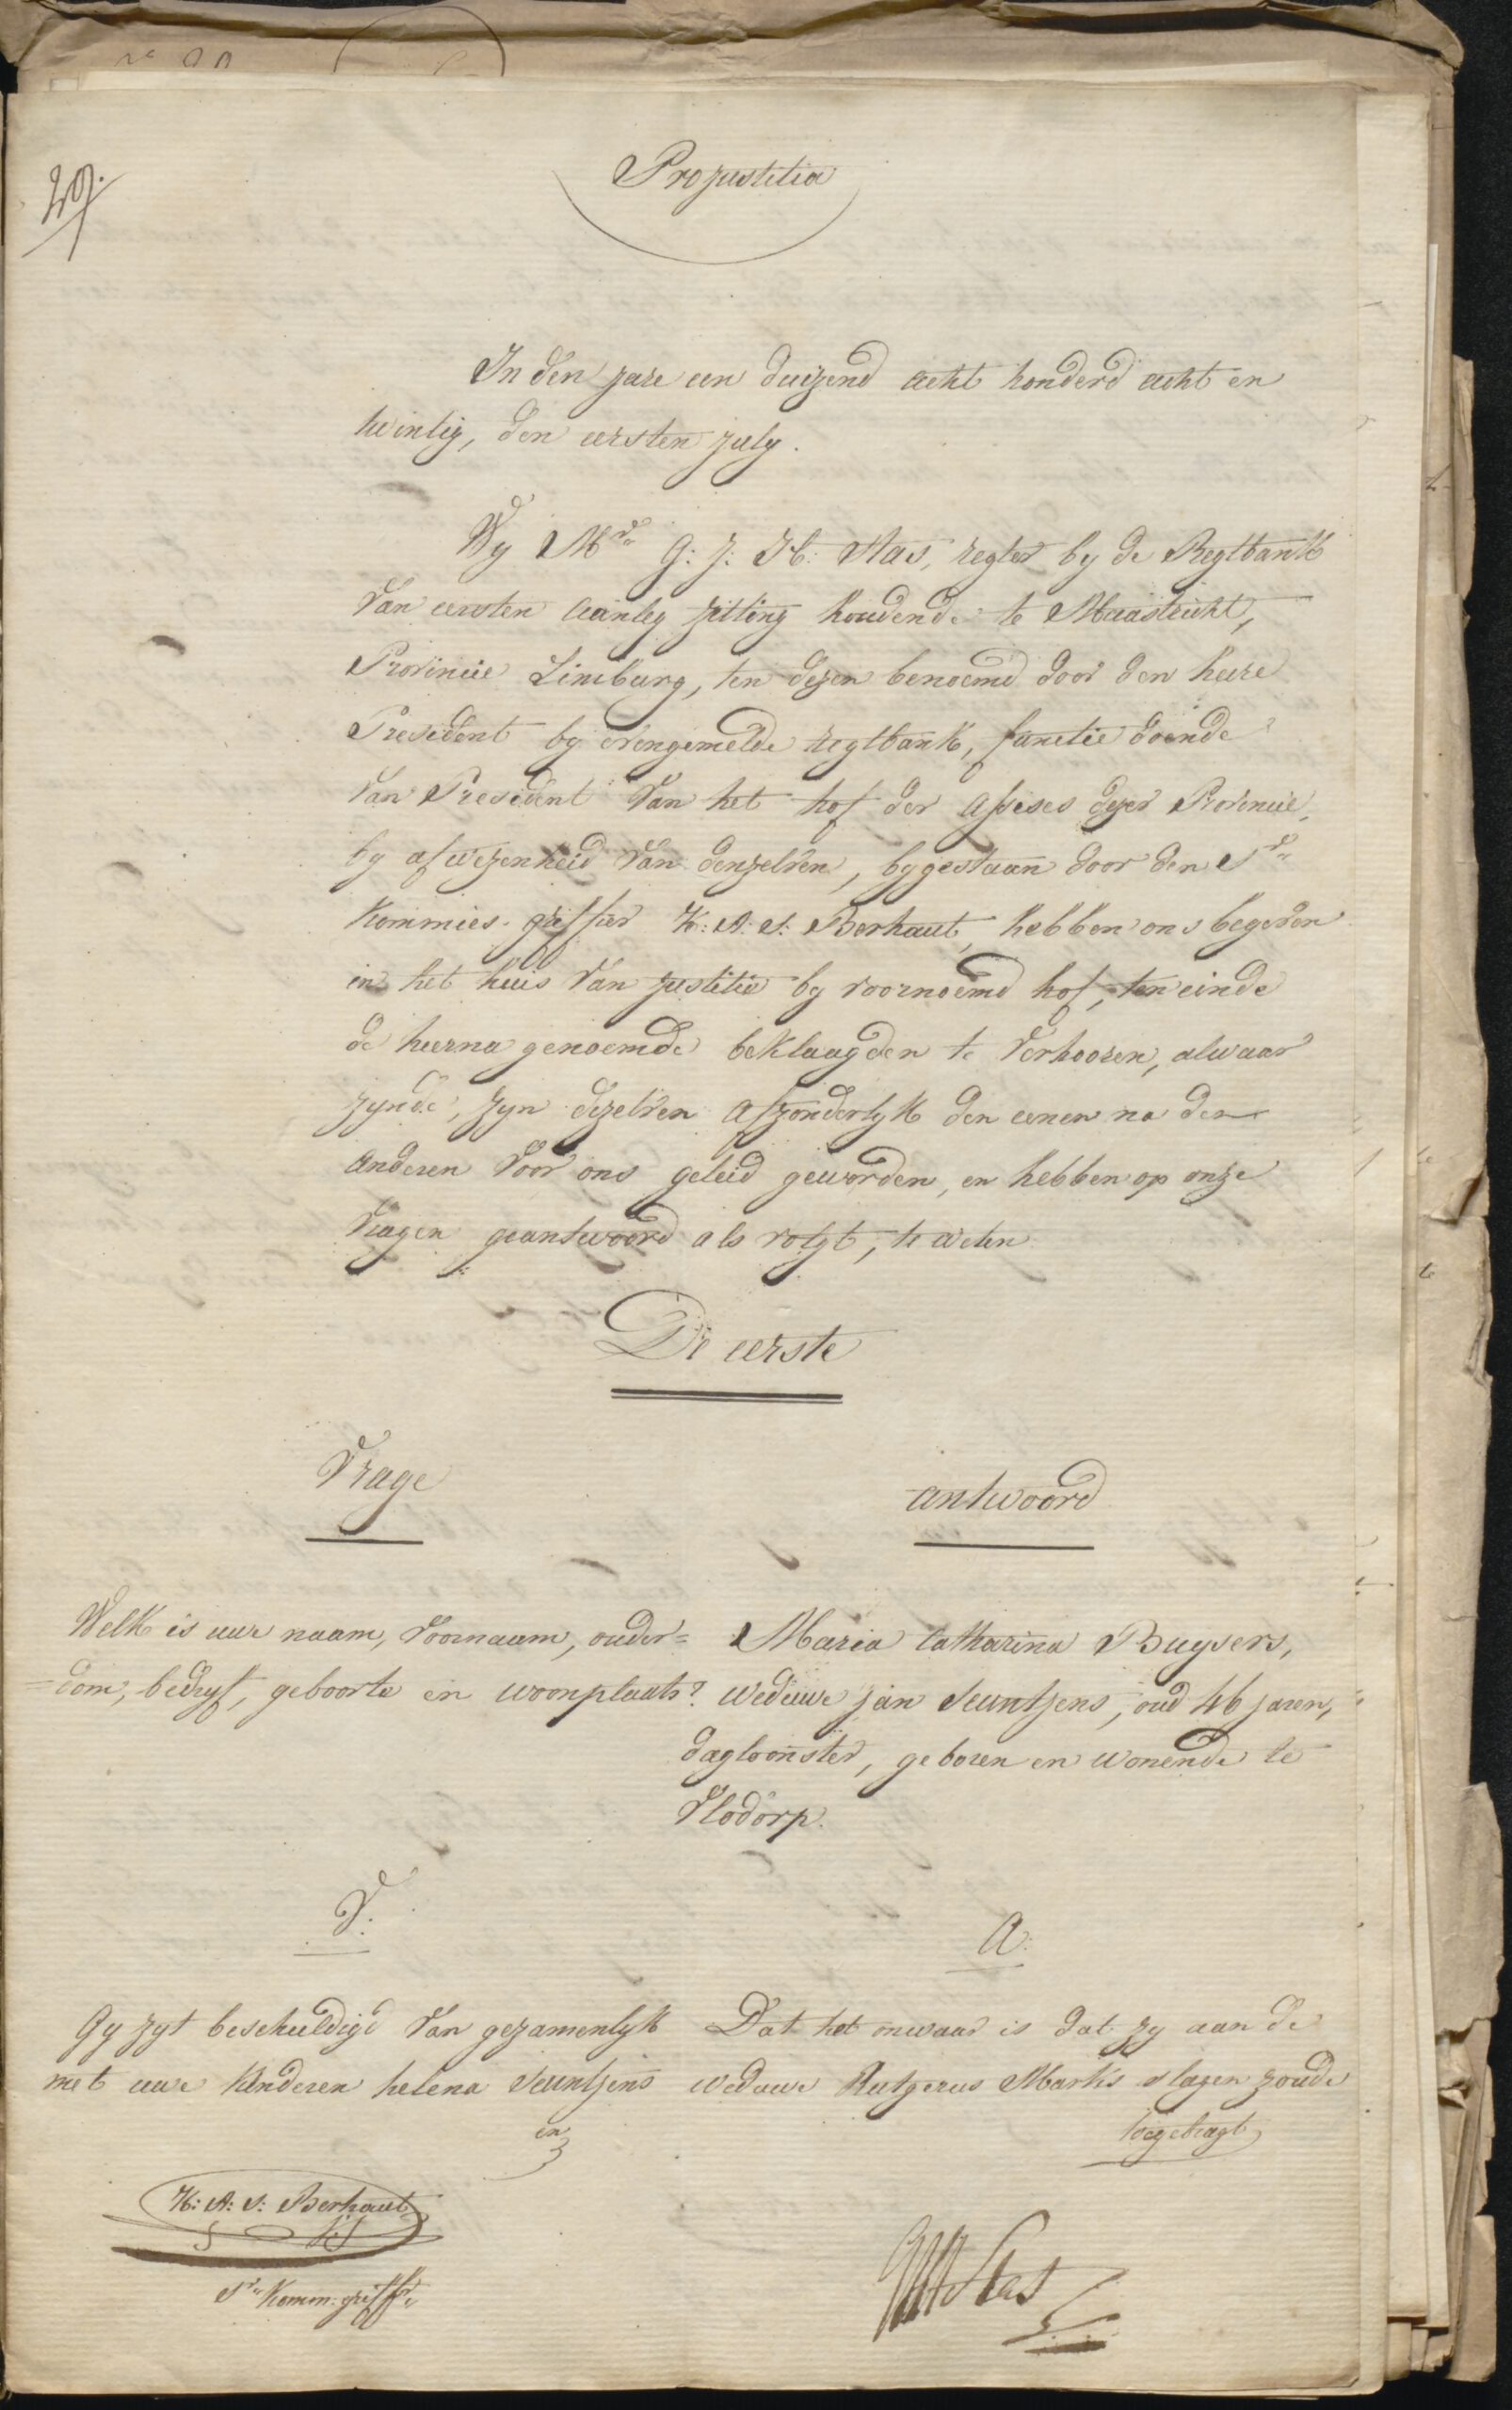 29.
Pro justitia
In den jare een duizend acht honderd acht en
twintig, den eersten july.
Wy Mr. G: J: H: Stas, regter by de Regtbank
Van eersten aanleg zitting houdende te Maastricht,
Provincie Limburg, ten dezen benoemd door den heere
President by evengemelde regtbank, functie doende
Van President Van het hof der assises dezer Provincie,
by afwezenheid Van denzelven, bygestaan door den Sr.
Kommies-griffier H: A: S: Berhaut, hebben ons begeven
in het huis Van justitie by voornoemd hof, ten einde
de hierna genoemde beklaagden te Verhooren, alwaar
zynde, zyn dezelven afzonderlyk den eenen na den
anderen Voor ons geleid geworden, en hebben op onze
Vragen geantwoord als volgt, te weten
De eerste
Vrage
antwoord
Welk is uwe naam, Voornaam, ouder=
=dom, bedryf, geboorte en woonplaats?
Maria Catharina Buysers,
weduwe jan Seuntjens, oud 46 jaren,
dagloonster, geboren en wonende te
Vlodorp.
V.
Gy zyt beschuldigd Van gezamenlyk
met uwe kinderen helena Seuntjens
en
A:
Dat het onwaar is dat zy aan de
weduwe Rutgerus Marks slagen zoude
toegebragt
H: A: S: Berhaut
Sr. Komm: griffr.
GJH Stas